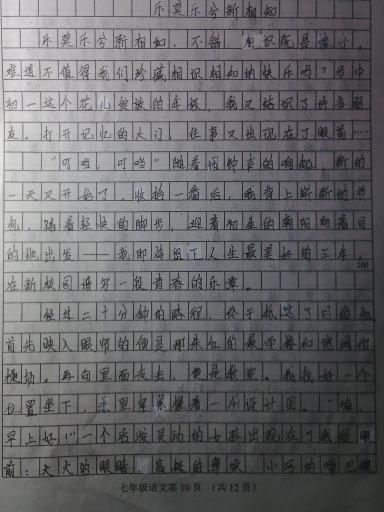 乐莫乐兮新相知
乐莫乐兮新相知,不错,相识既是缘分,
难道不值得我们珍藏相识相知的快乐吗?步中
初一这个花儿绽放的年级,我又结识了许多朋
友。打开记忆的大门,往事又出现在了眼前……
“叮当,叮当”随着闹钟声的响起,新的
一天又开始了,收拾一番后,我背上崭新的书
包,踏着轻快的脚步,迎着初生的朝阳向着目
的地出发——我即将留下人生最美好的三年,
200
在新校园谱写一段青春的乐章。
经过二十分钟的路程,终于抵达了目的地,
首先映入眼帘的便是那朱红的教学楼和宽阔的
操场。再向里面走去,便是教室。我找好一个
位置坐下,手里紧紧握着一份设计图。“嗨,
早上好!”一个活泼灵动的女孩出现在了我眼
前:大大的眼睛,高挺的鼻梁,小巧的嘴巴
七年级语文第 10 页 (共 12 页)